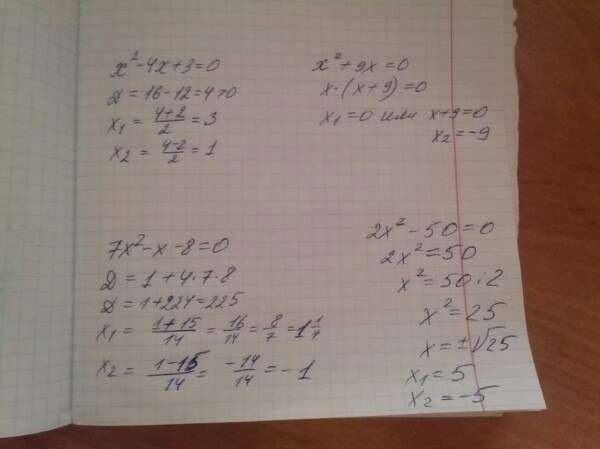 x²-4x+3=0
D=16-12=4>0
x₁=(4+2)/2=3
x₂=(4-2)/2=1
x²+9x=0
x·(x+9)=0
x₁=0 или x+9=0
x₂=-9
7x²-x-8=0
D=1+4·7·8
D=1+224=225
x₁=(1+15)/14=16/14=8/7=1 1/7
x₂=(1-15)/14=-14/14=-1
2x²-50=0
2x²=50
x²=50:2
x²=25
x=±√25
x₁=5
x₂=-5